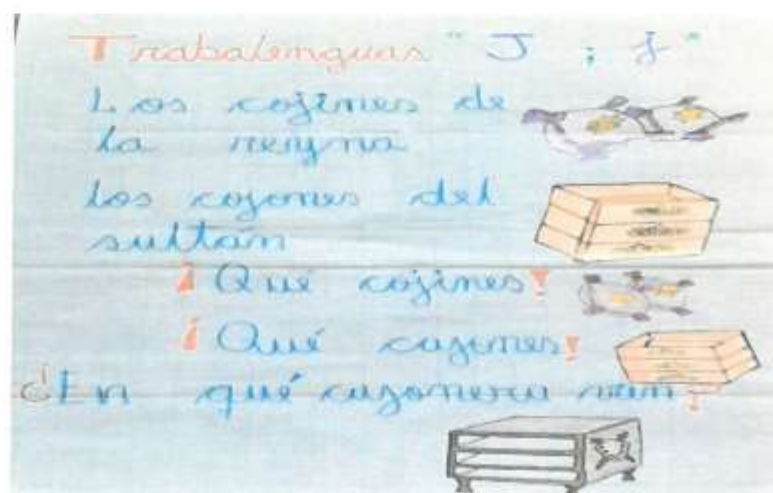 Trabalenguas " J ; j "
Los cojines de
la reyna
los cajones del
sultán
¡Qué cojines!
¡Qué cajones!
¿En qué cajonera van?